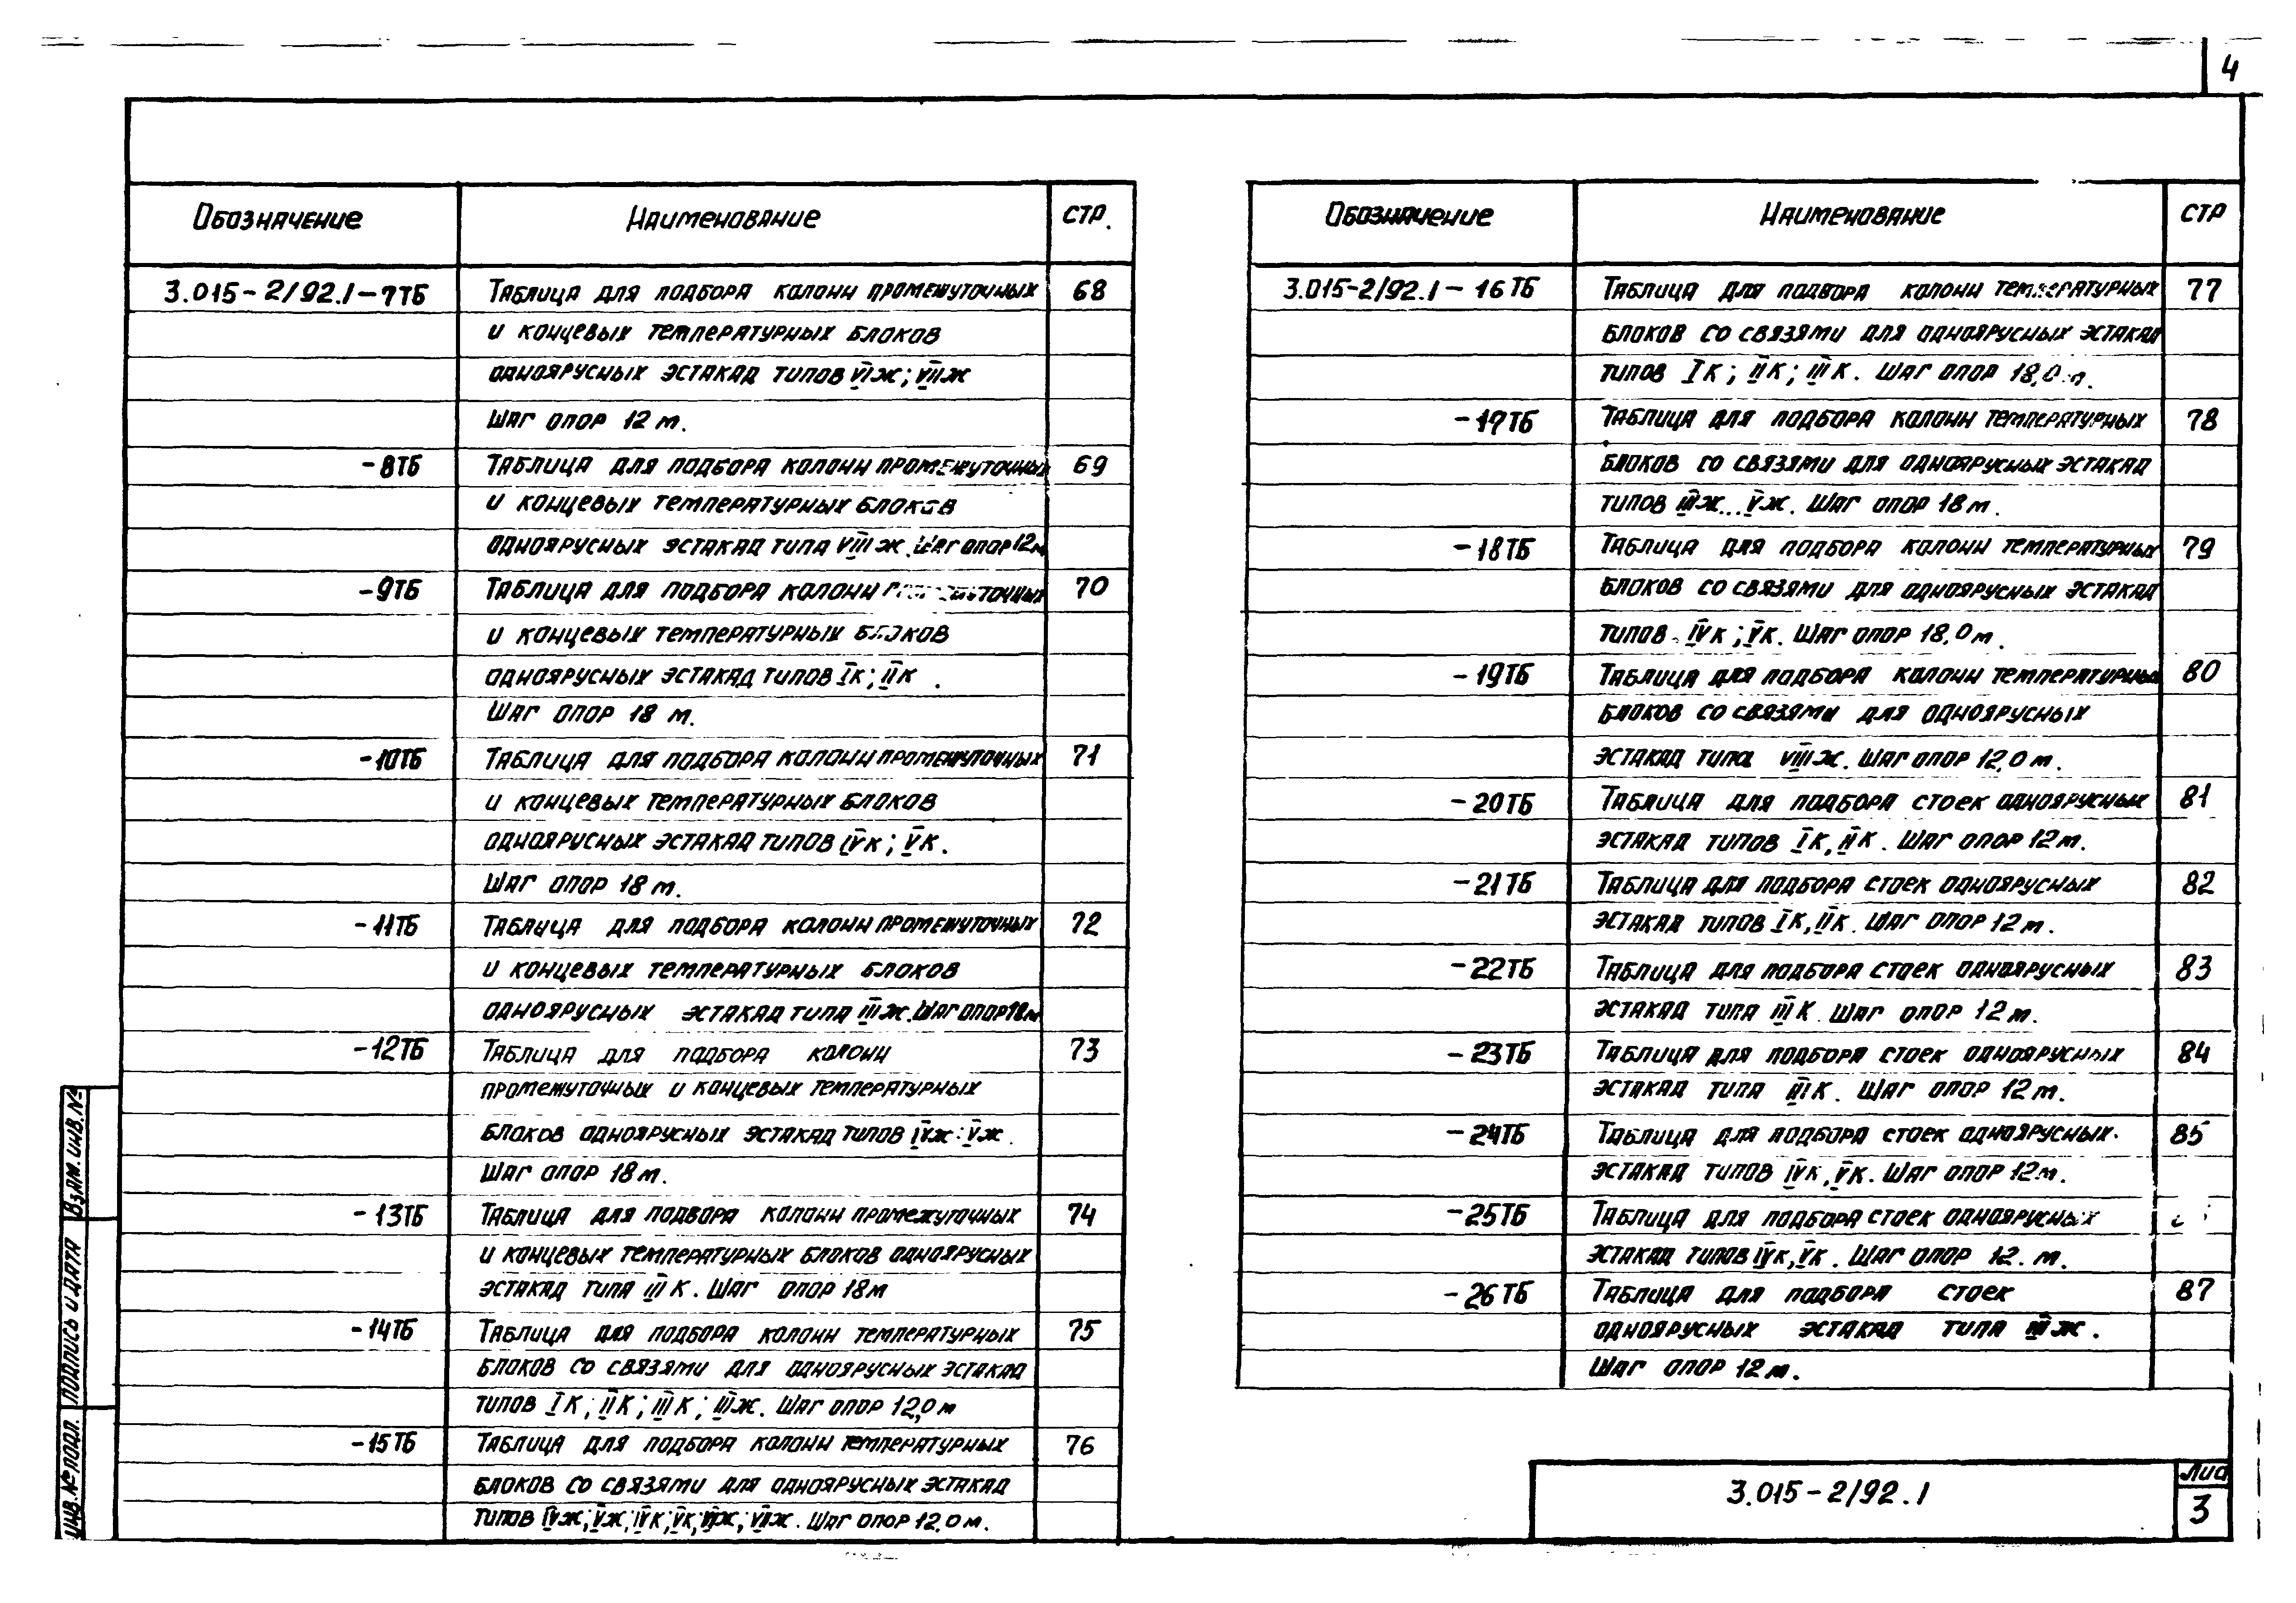 4
Обозначение Наименование стр.
3.015-2/92.1-7ТБ Таблица для подбора колонн промежуточных 68
и концевых температурных блоков
одноярусных эстакад типов VIж; VIIж
Шаг опор 12 м.
-8ТБ Таблица для подбора колонн промежуточных 69
и концевых температурных блоков
одноярусных эстакад типа VIIIж. Шаг опор 12м
-9ТБ Таблица для подбора колонн 70
и концевых температурных блоков
одноярусных эстакад типов Iк; IIк.
Шаг опор 18 м.
-10ТБ Таблица для подбора колонн промежуточных 71
и концевых температурных блоков
одноярусных эстакад типов IVк; Vк.
Шаг опор 18 м.
-11ТБ Таблица для подбора колонн промежуточных 72
и концевых температурных блоков
одноярусных эстакад типа IIIж. Шаг опор 18м
-12ТБ Таблица для подбора колонн 73
промежуточных и концевых температурных
блоков одноярусных эстакад типов IVж; Vж.
Шаг опор 18 м.
-13ТБ Таблица для подбора колонн промежуточных 74
и концевых температурных блоков одноярусных
эстакад типа III К. Шаг опор 18м
-14ТБ Таблица для подбора колонн температурных 75
блоков со связями для одноярусных эстакад
типов I К; II К; III К; IIIж. Шаг опор 12,0 м
-15ТБ Таблица для подбора колонн температурных 76
блоков со связями для одноярусных эстакад
типов IVж; Vж; IVк; Vк; VIж; VIIж. Шаг опор 12.0 м.
Обозначение Наименование стр
3.015-2/92.1-16ТБ Таблица для подбора колонн температурных 77
блоков со связями для одноярусных эстакад
типов I К; II К; III К. Шаг опор 18,0 м.
-17ТБ Таблица для подбора колонн температурных 78
блоков со связями для одноярусных эстакад
типов IIIж...Vж. Шаг опор 18 м.
-18ТБ Таблица для подбора колонн температурных 79
блоков со связями для одноярусных эстакад
типов IVк; Vк. Шаг опор 18.0 м.
-19ТБ Таблица для подбора колонн температурных 80
блоков со связями для одноярусных
эстакад типа VIIIж. Шаг опор 12.0 м.
-20ТБ Таблица для подбора стоек одноярусных 81
эстакад типов I К, II К. Шаг опор 12 м.
-21ТБ Таблица для подбора стоек одноярусных 82
эстакад типов I К, II К. Шаг опор 12 м.
-22ТБ Таблица для подбора стоек одноярусных 83
эстакад типа III К. Шаг опор 12 м.
-23ТБ Таблица для подбора стоек одноярусных 84
эстакад типа III К. Шаг опор 12 м.
-24ТБ Таблица для подбора стоек одноярусных. 85
эстакад типов IVк, Vк. Шаг опор 12м.
-25ТБ Таблица для подбора стоек одноярусных
эстакад типов IVк, Vк. Шаг опор 12. м.
-26ТБ Таблица для подбора стоек 87
одноярусных эстакад типа IIIж.
Шаг опор 12 м.
Взам. инв. №
Подпись и дата
Инв. № подл.
3.015-2/92.1
Лис
3